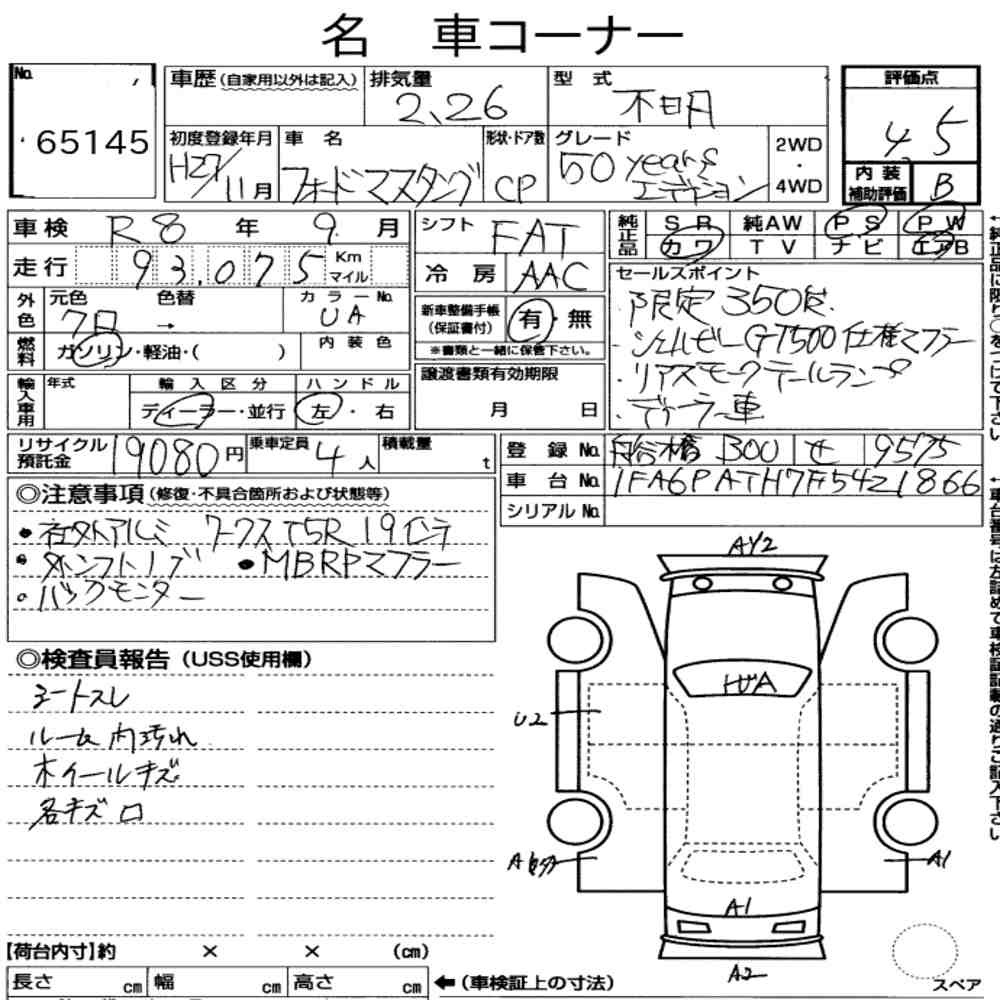 名 車コーナー
No.
65145
車歴(自家用以外は記入) 排気量 2.26 型式 不明
初度登録年月 H27/11月 車名 フォードマスタング 形状・ドア数 CP グレード 50 years エディション 2WD・4WD
評価点 4.5
内装補助評価 B
車検 R8年 9月
走行 93.075 Km マイル
外色 元色 クロ 色替 → カラーNo. UA
燃料 ガソリン・軽油・( ) 内装色
輸入車用 年式 輸入区分 ディーラー・並行 ハンドル 左・右
シフト FAT
冷房 AAC
新車整備手帳(保証書付) 有・無
※書類と一緒に保管下さい。
譲渡書類有効期限
月 日
純正品 SR 純AW PS PW
カワ TV ナビ エアB
セールスポイント
限定350台
・シェルビーGT500仕様マフラー
・リアスモークテールランプ
・ディーラー車
リサイクル預託金 19080円 乗車定員 4人 積載量 t
登録No. 300 せ 9575
車台No. 1FA6PATH7F5421866
シリアルNo.
◎注意事項(修復・不具合箇所および状態等)
●社外アルミ ワークスT5R 19インチ
●外シフトノブ ●MBRPマフラー
○バックモニター
◎検査員報告(USS使用欄)
シートスレ
ルーム内汚れ
ホイールキズ
各キズ
AY2
U2
A1
A1
A2
スペア
【荷台内寸】約 × × (cm)
長さ cm 幅 cm 高さ cm ←(車検証上の寸法)
↑純正品に限り○をつけて下さい
↑車台番号は左詰めで車検証記載の通りご記入下さい